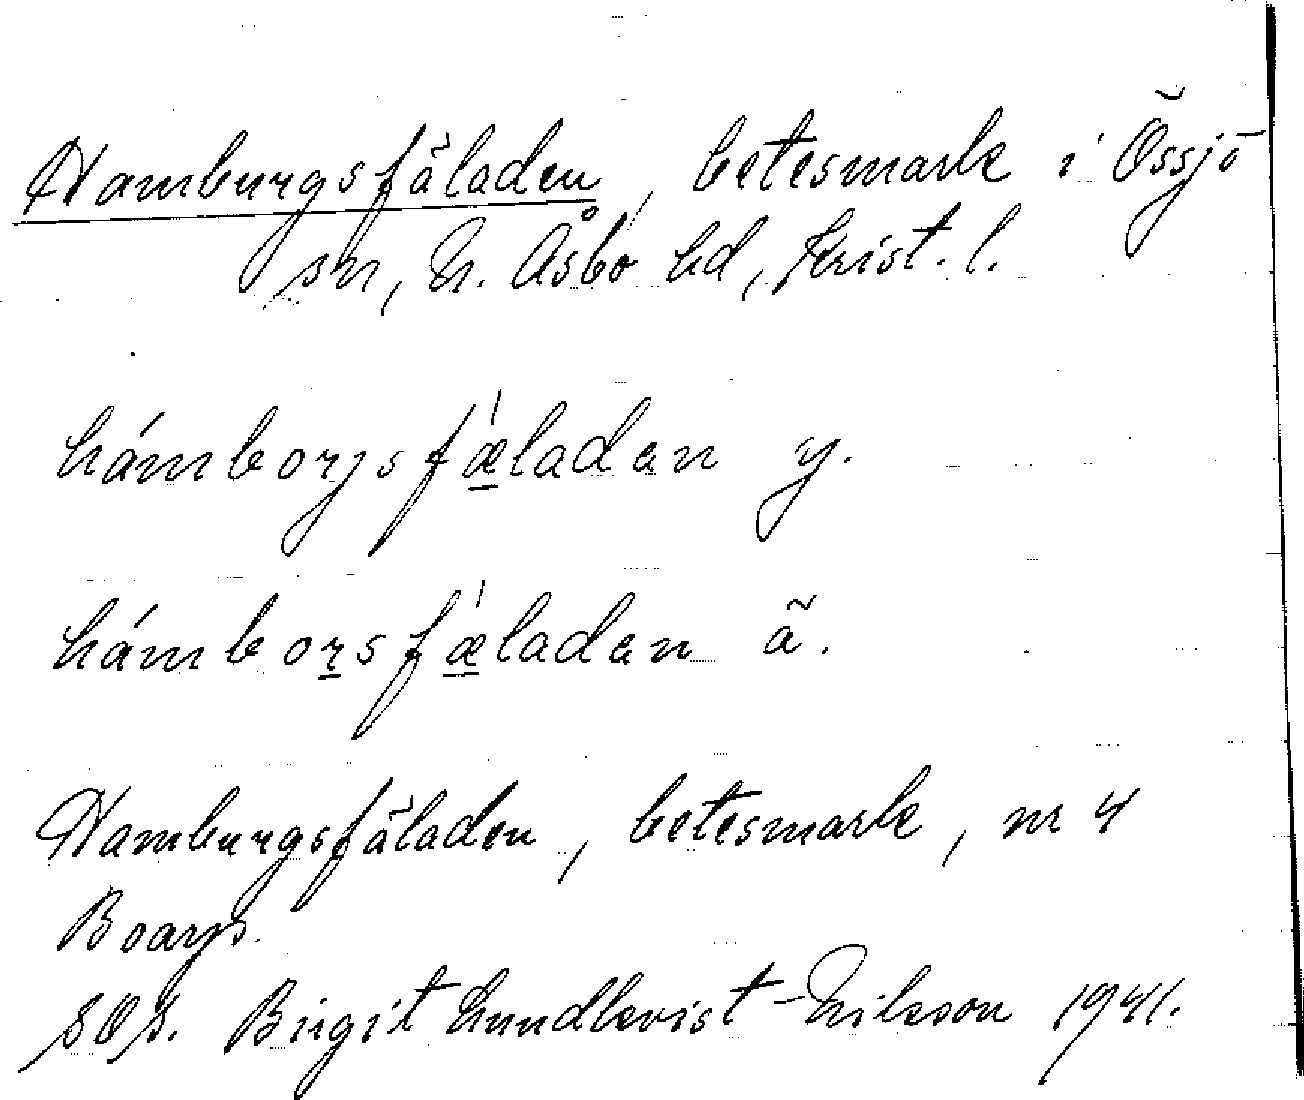 Hamburgsfäladen, betesmark i Össjö
sn, N. Åsbo hd, Krist. l.
hámborjsfǽladan y.
hámborsfǽladan ä.
Hamburgsfäladen, betesmark, nr 4
Boarp.
Birgit Lundkvist-Nilsson 1941.